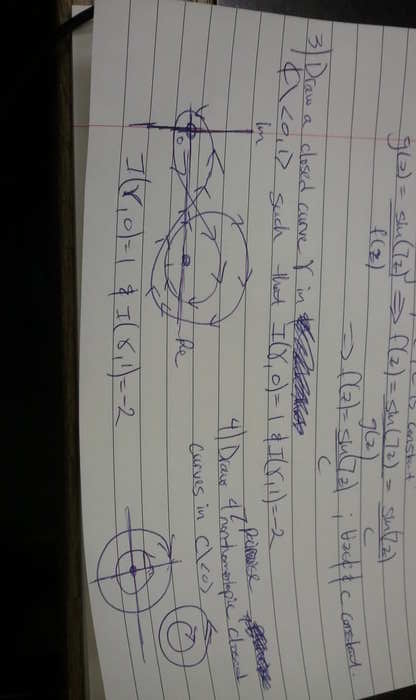 is constant
g(z) = sin(7z)/f(z) ⇒ f(z) = sin(7z)/g(z) = sin(7z)/C
⇒ f(z) = sin(7z)/C ; b/c g & c constant.
3) Draw a closed curve γ in
ℂ\<0,1> such that I(γ,0)=1 & I(γ,1)=-2
Im
0
Re
I(γ,0)=1 & I(γ,1)=-2
4) Draw 4 pairwise
nonhomotopic closed
curves in ℂ\<0>